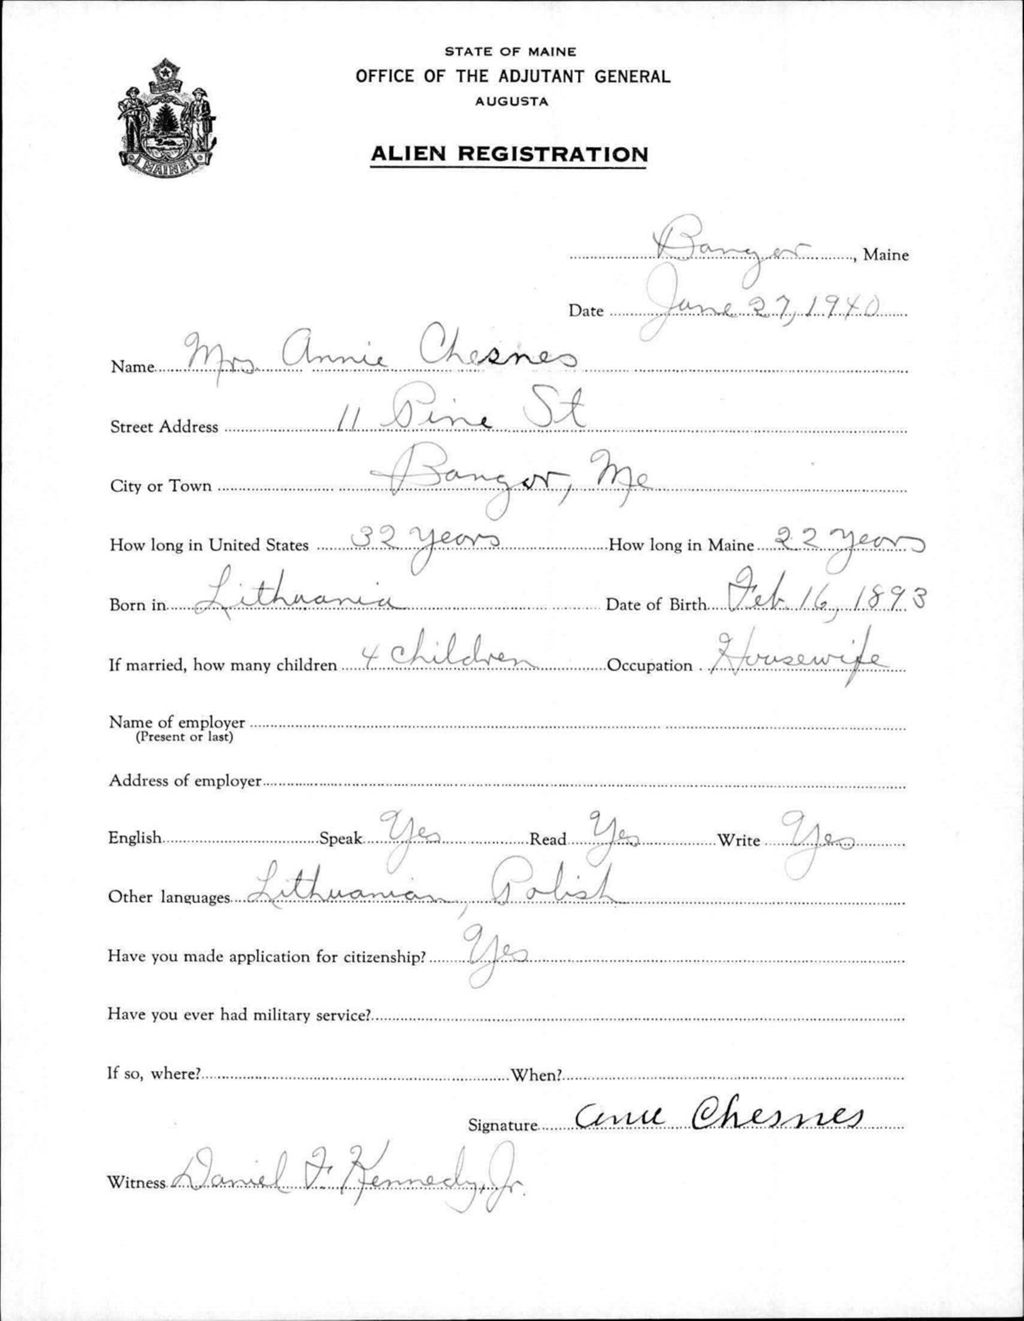 STATE OF MAINE
OFFICE OF THE ADJUTANT GENERAL
AUGUSTA
ALIEN REGISTRATION
MAINE
Bangor, Maine
Date June 27, 1940
Name Mrs. Annie Chesnes
Street Address 11 Pine St
City or Town Bangor, Me
How long in United States 32 years How long in Maine 22 years
Born in Lithuania Date of Birth Feb. 16, 1893
If married, how many children 4 children Occupation Housewife
Name of employer
(Present or last)
Address of employer
English Speak Yes Read Yes Write Yes
Other languages Lithuanian, Polish
Have you made application for citizenship? Yes
Have you ever had military service?
If so, where? When?
Signature Chesnes
Witness Daniel F. Kennedy, Jr.